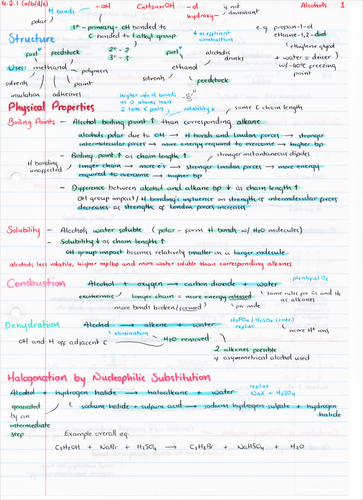 4.2.1 (a/b/d/e) H bonds -OH CnH2n+1OH -ol if not dominant Alcohols 1
polar hydroxy-
1° - primary - OH bonded to C bonded to 1 alkyl group * efficient combustion e.g. propan-1-ol
Structure 2° - 2 ethane-1,2-diol
fuel* feedstock 3° - 3 fuel* alcoholic drinks ethylene glycol
Uses: methanol polymers ethanol + water = deicer w/ -60°C freezing point
solvents paint solvents feedstock
insulation adhesives higher w/o H bonds as O atoms have 2 lone e⁻ pairs
solubility↓ same C chain length
Physical Properties
Boiling Points - Alcohol boiling point ↑ than corresponding alkane
alcohols polar due to OH → H bonds and London forces → stronger
intermolecular forces → more energy required to overcome → higher bp
- Boiling point ↑ as chain length ↑ stronger instantaneous dipoles
H bonding unaffected longer chain → more e⁻s → stronger London forces → more energy
required to overcome → higher bp
- Difference between alcohol and alkane bp ↓ as chain length ↑
OH group impact / H bonding's influence on strength of intermolecular forces
decreases as strength of London forces increases
Solubility - Alcohols water soluble (polar - form H bonds w/ H2O molecules)
- Solubility ↓ as chain length ↑
OH group impact becomes relatively smaller on a larger molecule
alcohols less volatile, higher mp/bp and more water soluble than corresponding alkanes
plentiful O2
Combustion Alcohol + oxygen → carbon dioxide + water
exothermic longer chain = more energy released same rules for Cs and Hs as alkanes
more bonds broken/formed per mole
H3PO4 / H2SO4 (conc.)
Dehydration Alcohol → alkene + water reflux
elimination more H⁺ ions
OH and H off adjacent C H2O removed
2 alkenes possible
if asymmetrical alcohol used
Halogenation by Nucleophilic Substitution
reflux
Alcohol + hydrogen halide → haloalkane + water NaX + H2SO4
generated sodium halide + sulfuric acid → sodium hydrogen sulfate + hydrogen
by an halide
intermediate
step Example overall eq:
C2H5OH + NaBr + H2SO4 → C2H5Br + NaHSO4 + H2O